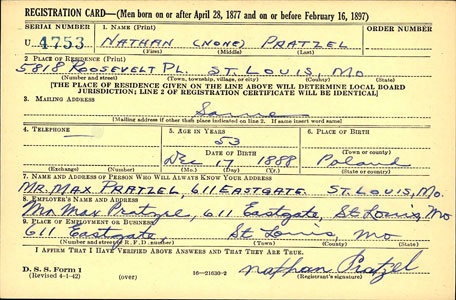 REGISTRATION CARD—(Men born on or after April 28, 1877 and on or before February 16, 1897)
SERIAL NUMBER
1. NAME (Print)
ORDER NUMBER
U 4753
NATHAN (NONE) PRATZEL
(First) (Middle) (Last)
2. PLACE OF RESIDENCE (Print)
5818 ROOSEVELT PL. ST. LOUIS, MO
(Number and street) (Town, township, village, or city) (County) (State)
[THE PLACE OF RESIDENCE GIVEN ON THE LINE ABOVE WILL DETERMINE LOCAL BOARD
JURISDICTION; LINE 2 OF REGISTRATION CERTIFICATE WILL BE IDENTICAL]
3. MAILING ADDRESS
Same
[Mailing address if other than place indicated on line 2. If same insert word same]
4. TELEPHONE
5. AGE IN YEARS
6. PLACE OF BIRTH
53
DATE OF BIRTH
(Town or county)
Dec 17 1888
Poland
(Exchange) (Number) (Mo.) (Day) (Yr.) (State or country)
7. NAME AND ADDRESS OF PERSON WHO WILL ALWAYS KNOW YOUR ADDRESS
MR. MAX PRATZEL, 611 EASTGATE ST. LOUIS, MO.
8. EMPLOYER'S NAME AND ADDRESS
Mr Max Pratzel, 611 Eastgate, St Louis, Mo
9. PLACE OF EMPLOYMENT OR BUSINESS
611 Eastgate, St Louis, Mo
(Number and street or R. F. D. number) (Town) (County) (State)
I AFFIRM THAT I HAVE VERIFIED ABOVE ANSWERS AND THAT THEY ARE TRUE.
D. S. S. Form 1
(Revised 4-1-42) (over) 16-21630-2
Nathan Pratzel
(Registrant's signature)